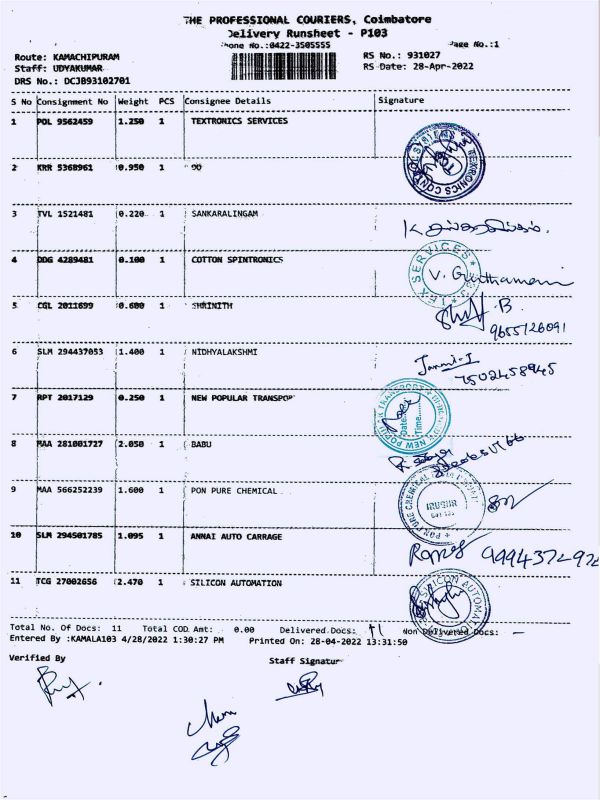 THE PROFESSIONAL COURIERS, Coimbatore
Delivery Runsheet - P103
Phone No.:0422-3505555 Page No.:1
Route: KAMACHIPURAM RS No.: 931027
Staff: UDYAKUMAR RS Date: 28-Apr-2022
DRS No.: DCJB93102701
S No Consignment No Weight PCS Consignee Details Signature
1 POL 9562459 1.250 1 TEXTRONICS SERVICES
2 KRR 5368961 0.950 1 90
3 TVL 1521481 0.220 1 SANKARALINGAM
4 DDG 4289481 0.100 1 COTTON SPINTRONICS
V. Gunthamani
5 CGL 2011699 0.600 1 SHRINITH
9655126091
6 SLM 294437053 1.400 1 NIDHYALAKSHMI
7502458945
7 RPT 2017129 0.250 1 NEW POPULAR TRANSPOR
Date:
Time:
8 MAA 281001727 2.050 1 BABU
9 MAA 566252239 1.600 1 PON PURE CHEMICAL
IRUGUR
10 SLM 294501785 1.095 1 ANNAI AUTO CARRAGE
Ramesh
11 TCG 27002656 2.470 1 SILICON AUTOMATION
SILICON AUTOMATION
Total No. Of Docs: 11 Total COD Amt: 0.00 Delivered Docs: 11 Non Delivered Docs: -
Entered By :KAMALA103 4/28/2022 1:30:27 PM Printed On: 28-04-2022 13:31:50
Verified By Staff Signatur